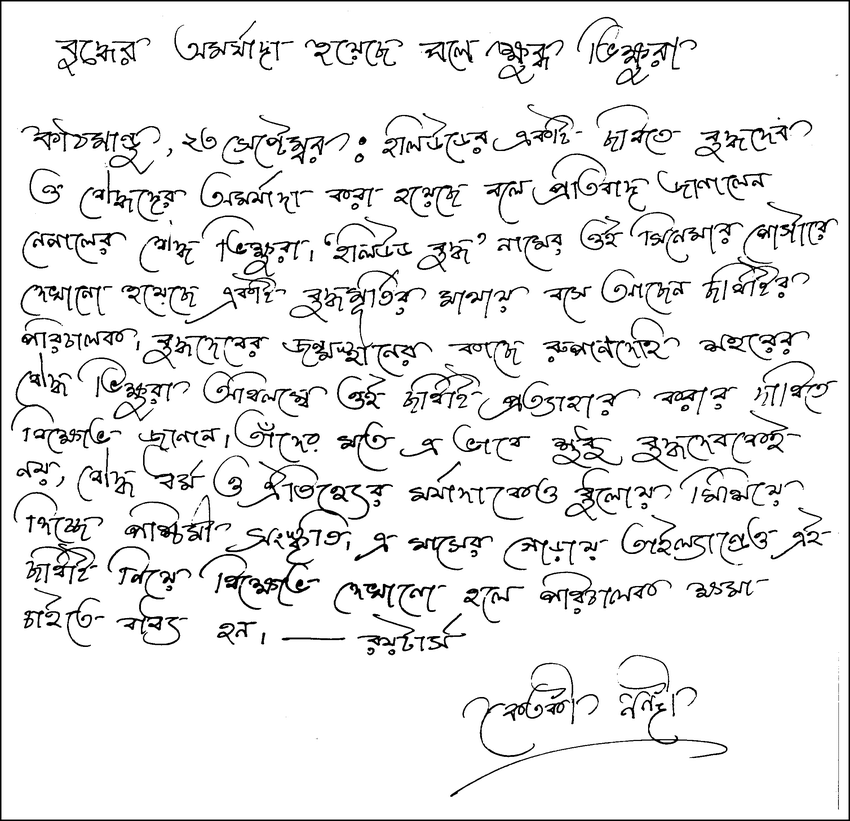 বুদ্ধের অমর্যাদা হয়েছে বলে ক্ষুব্ধ ভিক্ষুরা
কাঠমান্ডু, ২৩ সেপ্টেম্বর : হলিউডের একটি ছবিতে বুদ্ধদেব
ও বৌদ্ধদের অমর্যাদা করা হয়েছে বলে প্রতিবাদ জানালেন
নেপালের বৌদ্ধ ভিক্ষুরা। 'হলিউড বুদ্ধ' নামের ওই সিনেমার পোস্টারে
দেখানো হয়েছে একটি বুদ্ধমূর্তির মাথায় বসে আছেন ছবিটির
পরিচালক। বুদ্ধদেবের জন্মস্থানের কাছে রুপানদেহি শহরের
বৌদ্ধ ভিক্ষুরা অবিলম্বে ওই ছবিটি প্রত্যাহার করার দাবিতে
বিক্ষোভ জানান। তাঁদের মতে এ ভাবে শুধু বুদ্ধদেবকেই
নয়, বৌদ্ধ ধর্ম ও ঐতিহ্যের মর্যাদাকেও ধুলোয় মিশিয়ে
দিচ্ছে পশ্চিমী সংস্কৃতি। এ মাসের গোড়ায় তাইল্যান্ডেও এই
ছবিটি নিয়ে বিক্ষোভ দেখানো হলে পরিচালক ক্ষমা
চাইতে বাধ্য হন। — রয়টার্স
কেতকী নন্দী